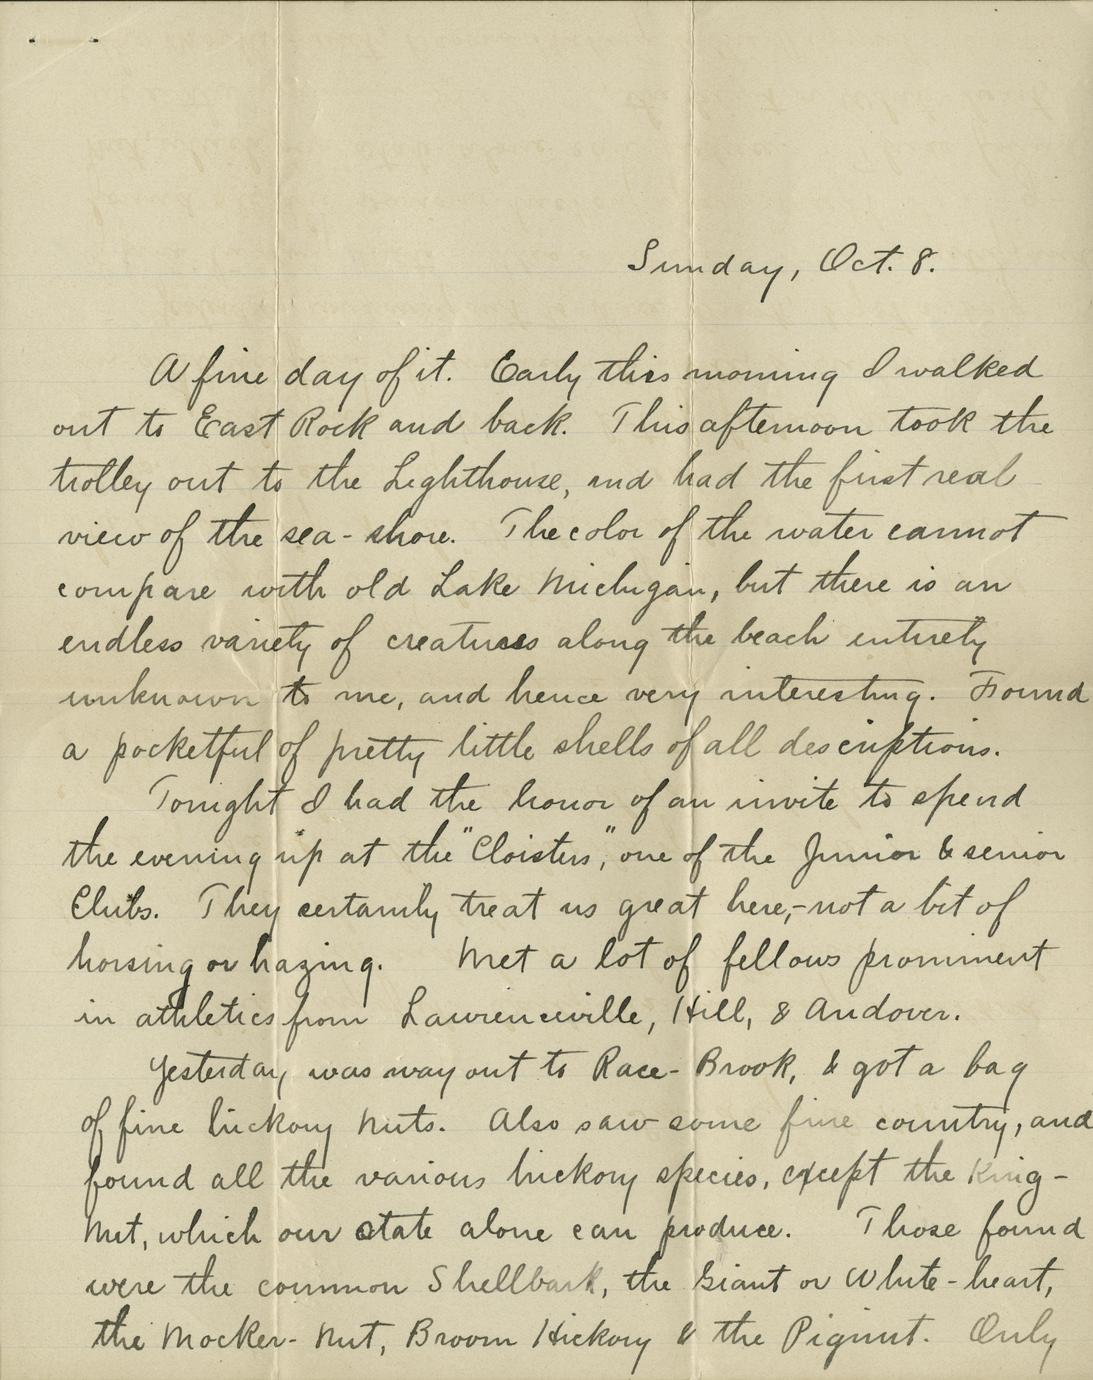 Sunday, Oct. 8.
A fine day of it. Early this morning I walked
out to East Rock and back. This afternoon took the
trolley out to the Lighthouse, and had the first real
view of the sea-shore. The color of the water cannot
compare with old Lake Michigan, but there is an
endless variety of creatures along the beach entirely
unknown to me, and hence very interesting. Found
a pocketful of pretty little shells of all descriptions.
Tonight I had the honor of an invite to spend
the evening up at the "Cloisters," one of the Junior & senior
Clubs. They certainly treat us great here,-not a bit of
horsing or hazing. Met a lot of fellows prominent
in athletics from Lawrenceville, Hill, & Andover.
Yesterday was way out to Race-Brook, & got a bag
of fine hickory nuts. Also saw some fine country, and
found all the various hickory species, except the King-
nut, which our state alone can produce. Those found
were the common Shellbark, the Giant or White-heart,
the Mocker-nut, Broom Hickory & the Pignut. Only